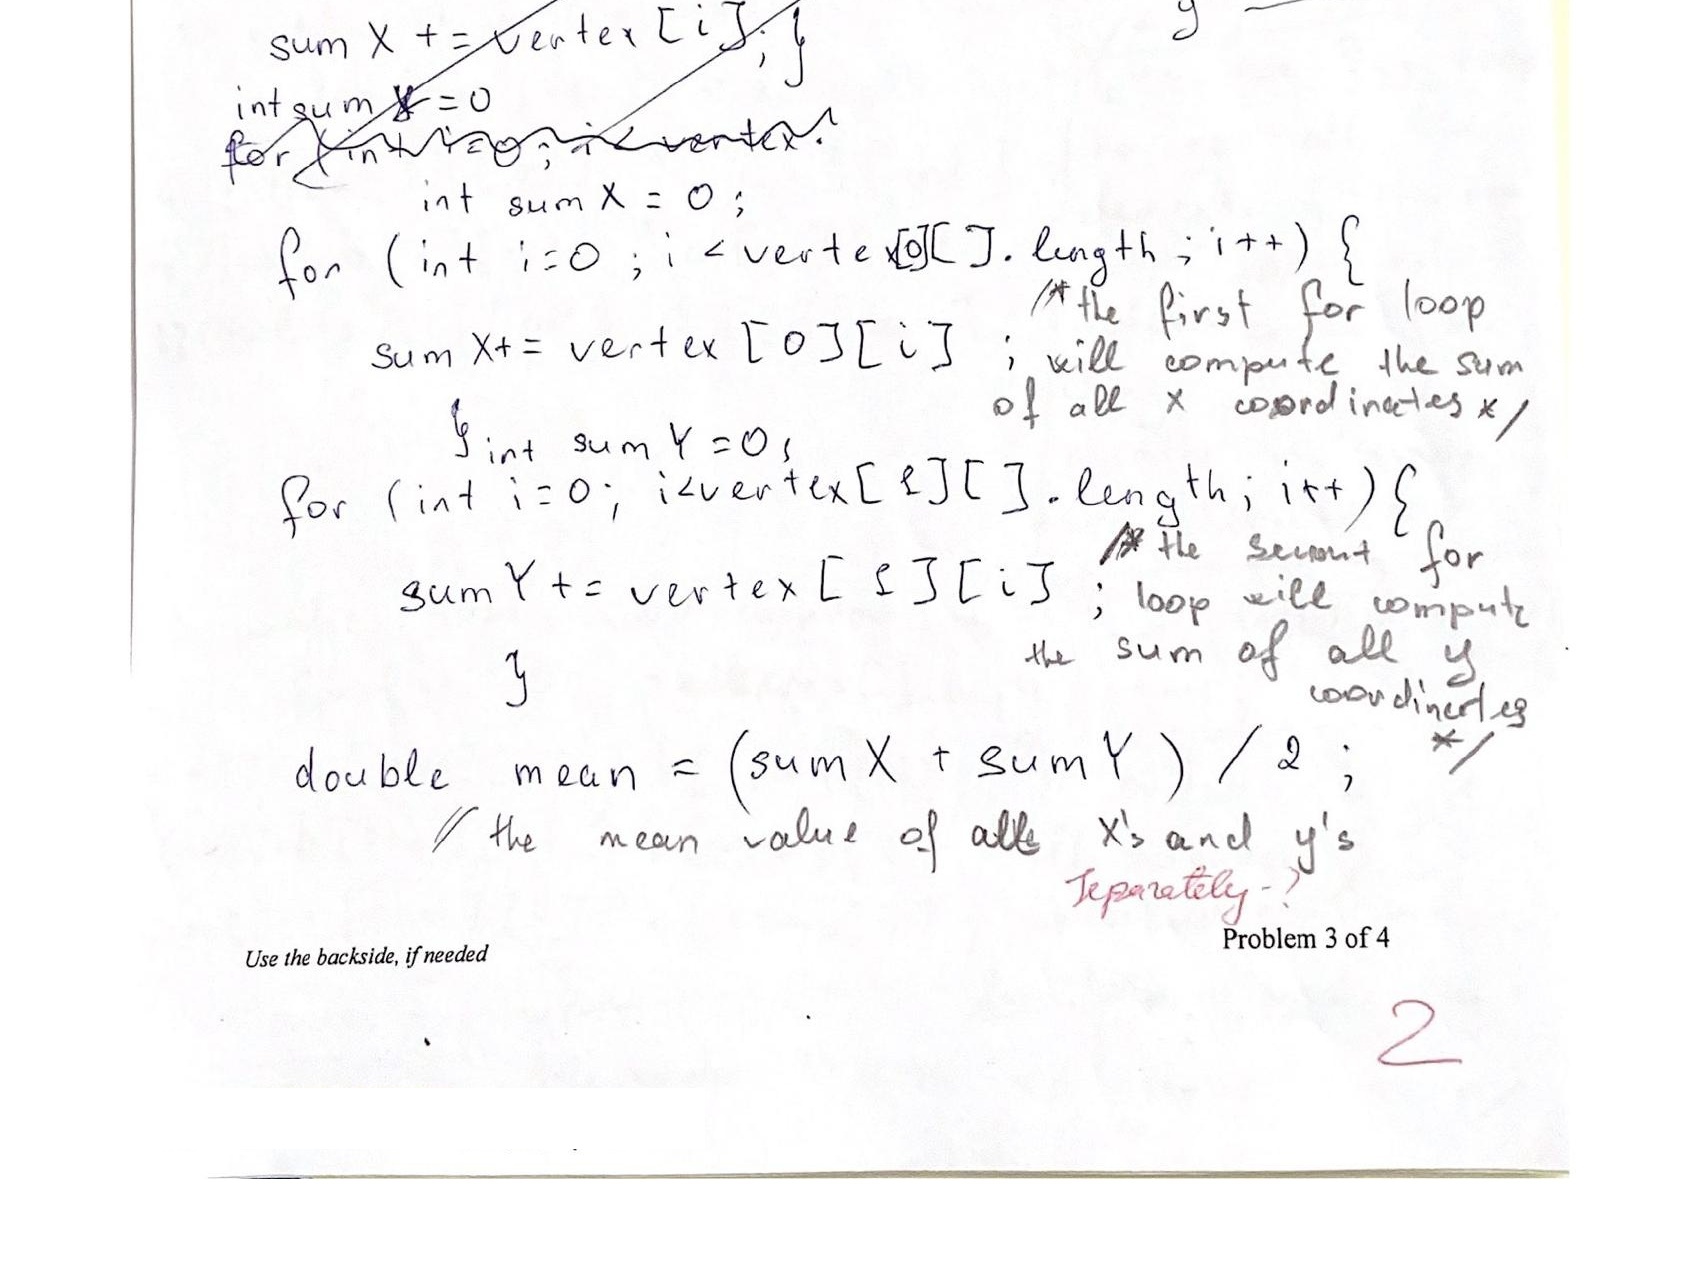 y
sum X += vertex [i]; }
int sum Y = 0
for (int i=0; i<vertex.
int sum X = 0 ;
for (int i=0 ; i < vertex[0][ ]. length ; i++) {
/* the first for loop
sum X+ = vertex [0][i] ; will compute the sum
of all x coordinates */
} int sum Y = 0;
for (int i=0; i<vertex[1][ ]. length; i++) {
/* the second for
sum Y += vertex [1][i] ; loop will compute
the sum of all y
} coordinates
*/
double mean = (sum X + sum Y ) / 2 ;
// the mean value of all X's and y's
Separately - ?
Problem 3 of 4
Use the backside, if needed
2